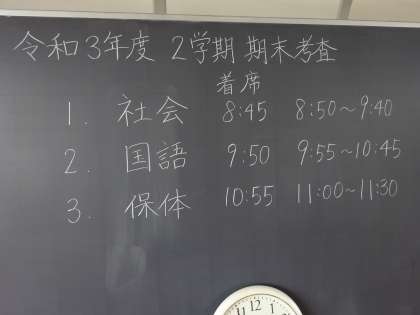 令和3年度 2学期 期末考査
着席
1. 社会 8:45 8:50~9:40
2. 国語 9:50 9:55~10:45
3. 保体 10:55 11:00~11:30
11 12 1